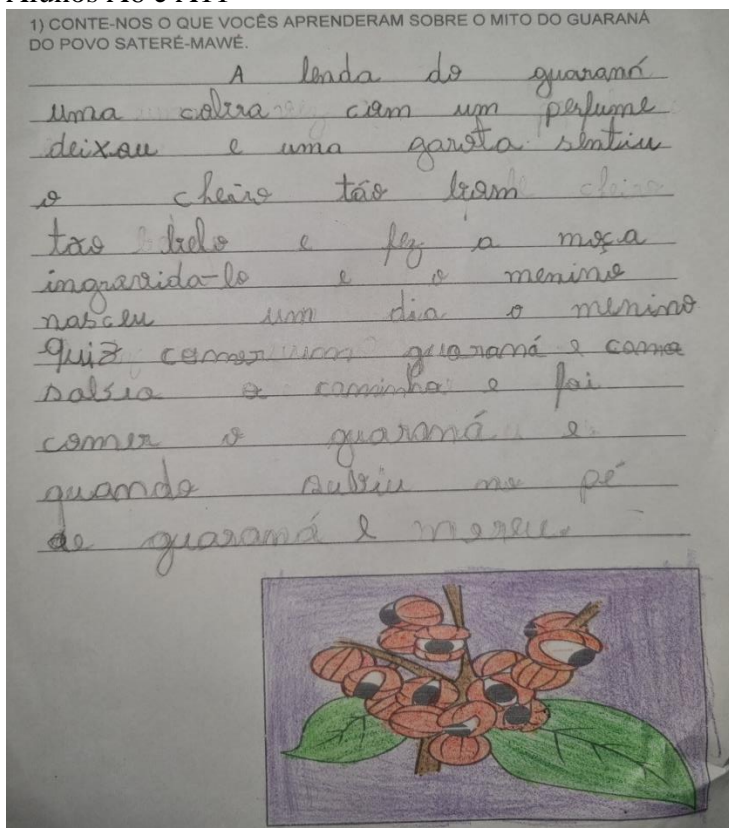 Alunos A6 e A11
1) CONTE-NOS O QUE VOCÊS APRENDERAM SOBRE O MITO DO GUARANÁ
DO POVO SATERÉ-MAWÉ.
A lenda do guaraná
uma cobra com um perfume
deixou e uma garota sentiu
o cheiro tão bom
tão belo e fez a moça
ingravida-lo e o menino
nasceu um dia o menino
quiz comer guaraná e como
sabia o caminho e foi
comer o guaraná e
quando subiu no pé
de guaraná e moreu.